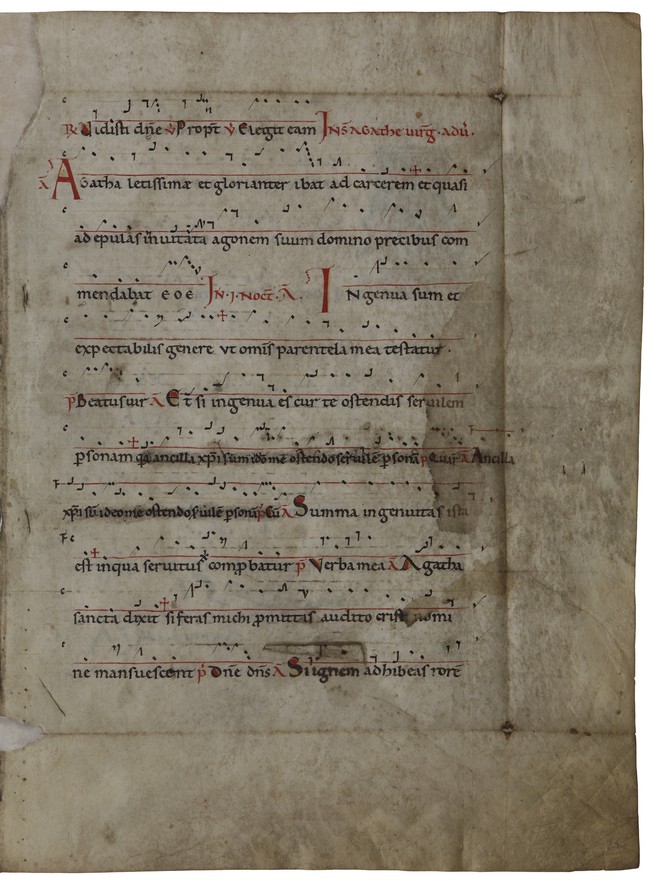 R Vidisti dñe v Propt v Elegit eam INS AGATHE uirg. adu.
A Agatha letissimæ et glorianter ibat ad carcerem et quasi
ad epulas inuitata agonem suum domino precibus com
mendabat e o e IN .I. Noct. A. INgenua sum et
expectabilis genere vt omis parentela mea testatur .
p Beatus uir A Et si ingenua es cur te ostendis seruilem
psonam qa ancilla xpi sum ideo me ostendo seruile psona p Quare A Ancilla
xpi su ideo me ostendo seruile psona p Cu A Summa ingenuitas ista
est inqua seruitus compbatur p Verba mea A Agatha
sancta dixit si feras michi pmittis audito cristi nomi
ne mansuescent p Dne dns A Si ignem adhibeas rore